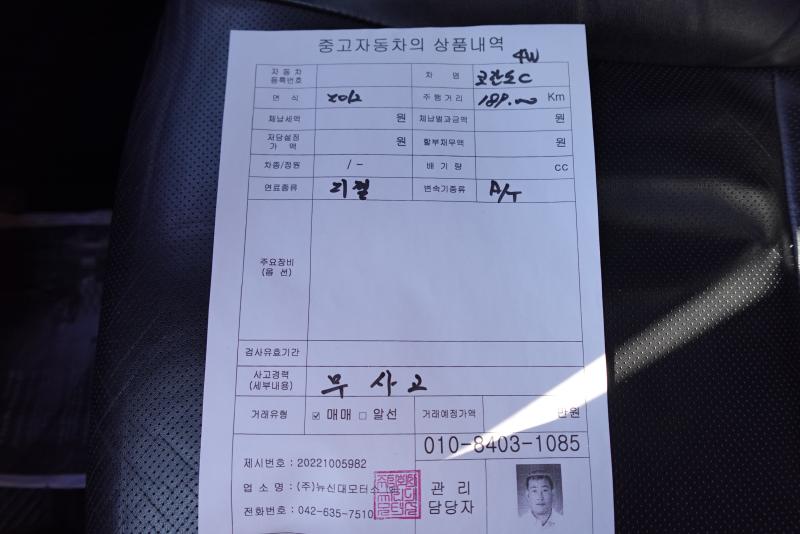 중고자동차의 상품내역
4W
자동차 등록번호 차 명 코란도C
연 식 2012 주행거리 189.000 Km
체납세액 원 체납벌과금액 원
저당설정 가 액 원 할부채무액 원
차종/정원 / - 배 기 량 cc
연료종류 디젤 변속기종류 A/T
주요장비 (옵 션)
검사유효기간
사고경력 (세부내용) 무 사고
거래유형 ☑ 매매 □ 알선 거래예정가액 만원
010-8403-1085
제시번호 : 20221005982
업 소 명 : (주)뉴신대모터스
전화번호 : 042-635-7510
관 리
담당자